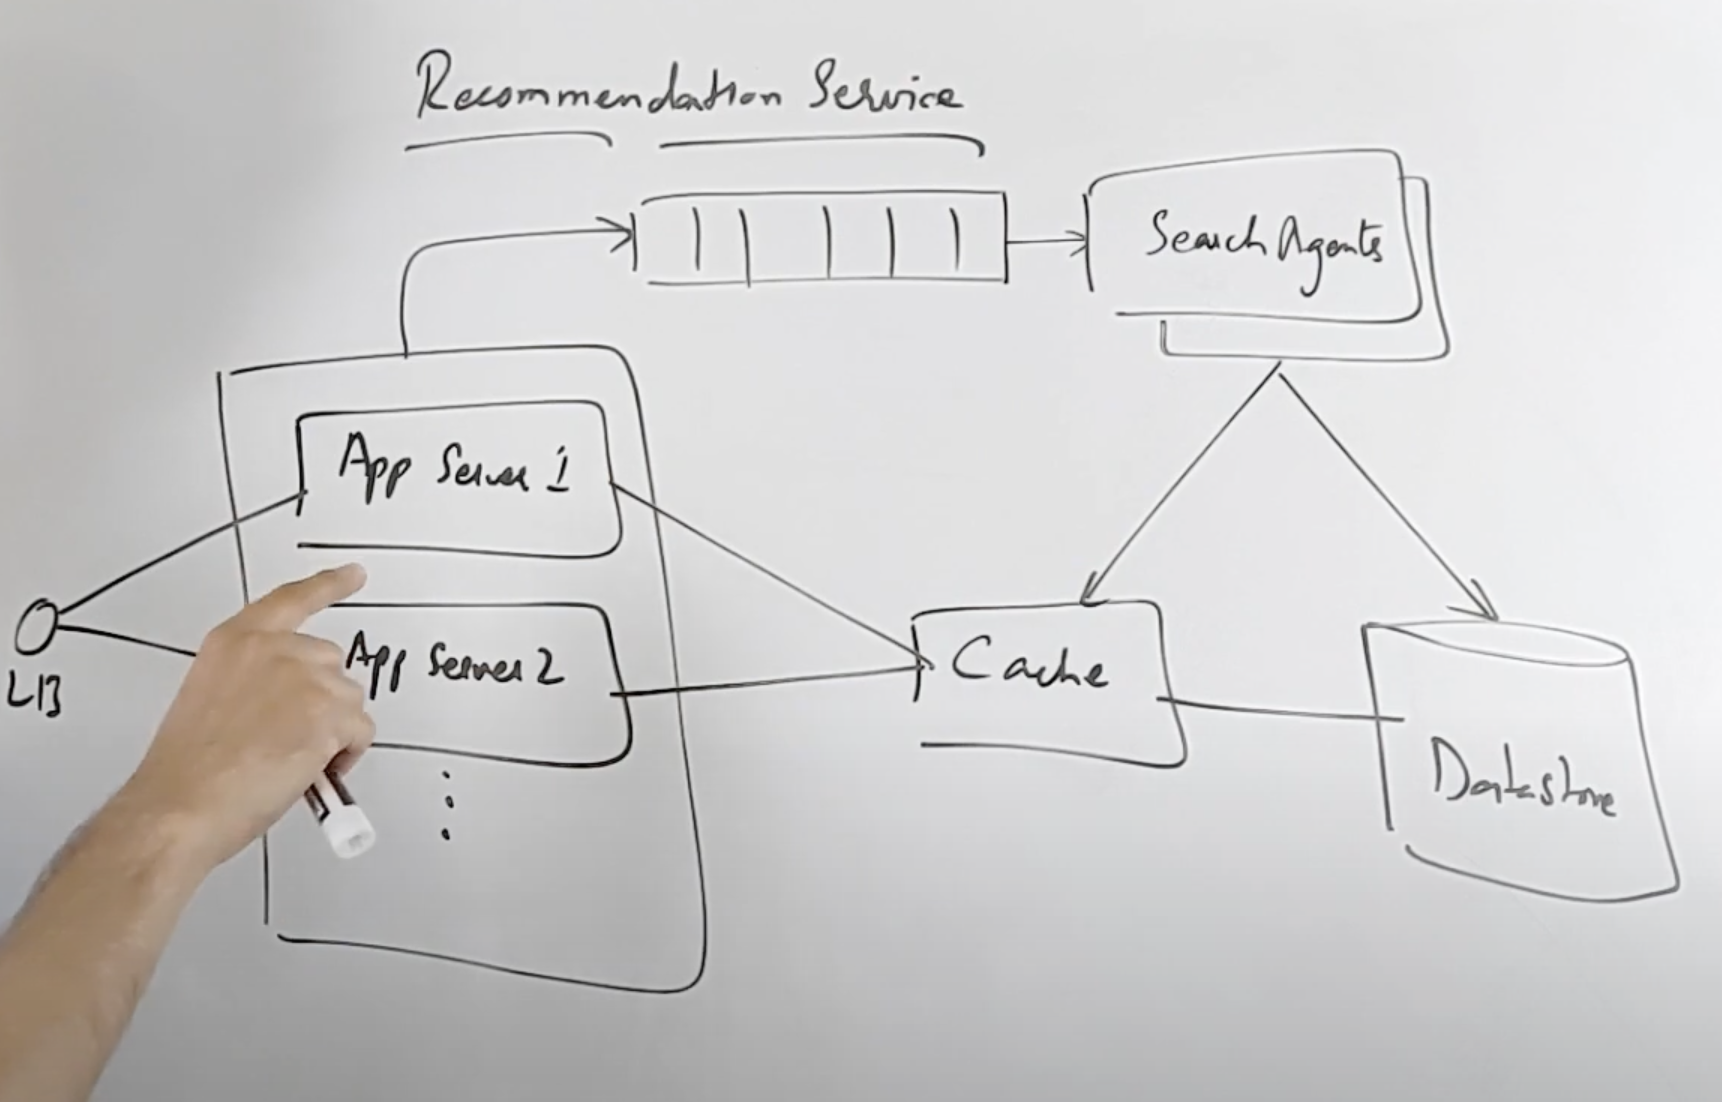 Recommendation Service
Search Agents
App Server 1
App Server 2
LB
Cache
Datastore